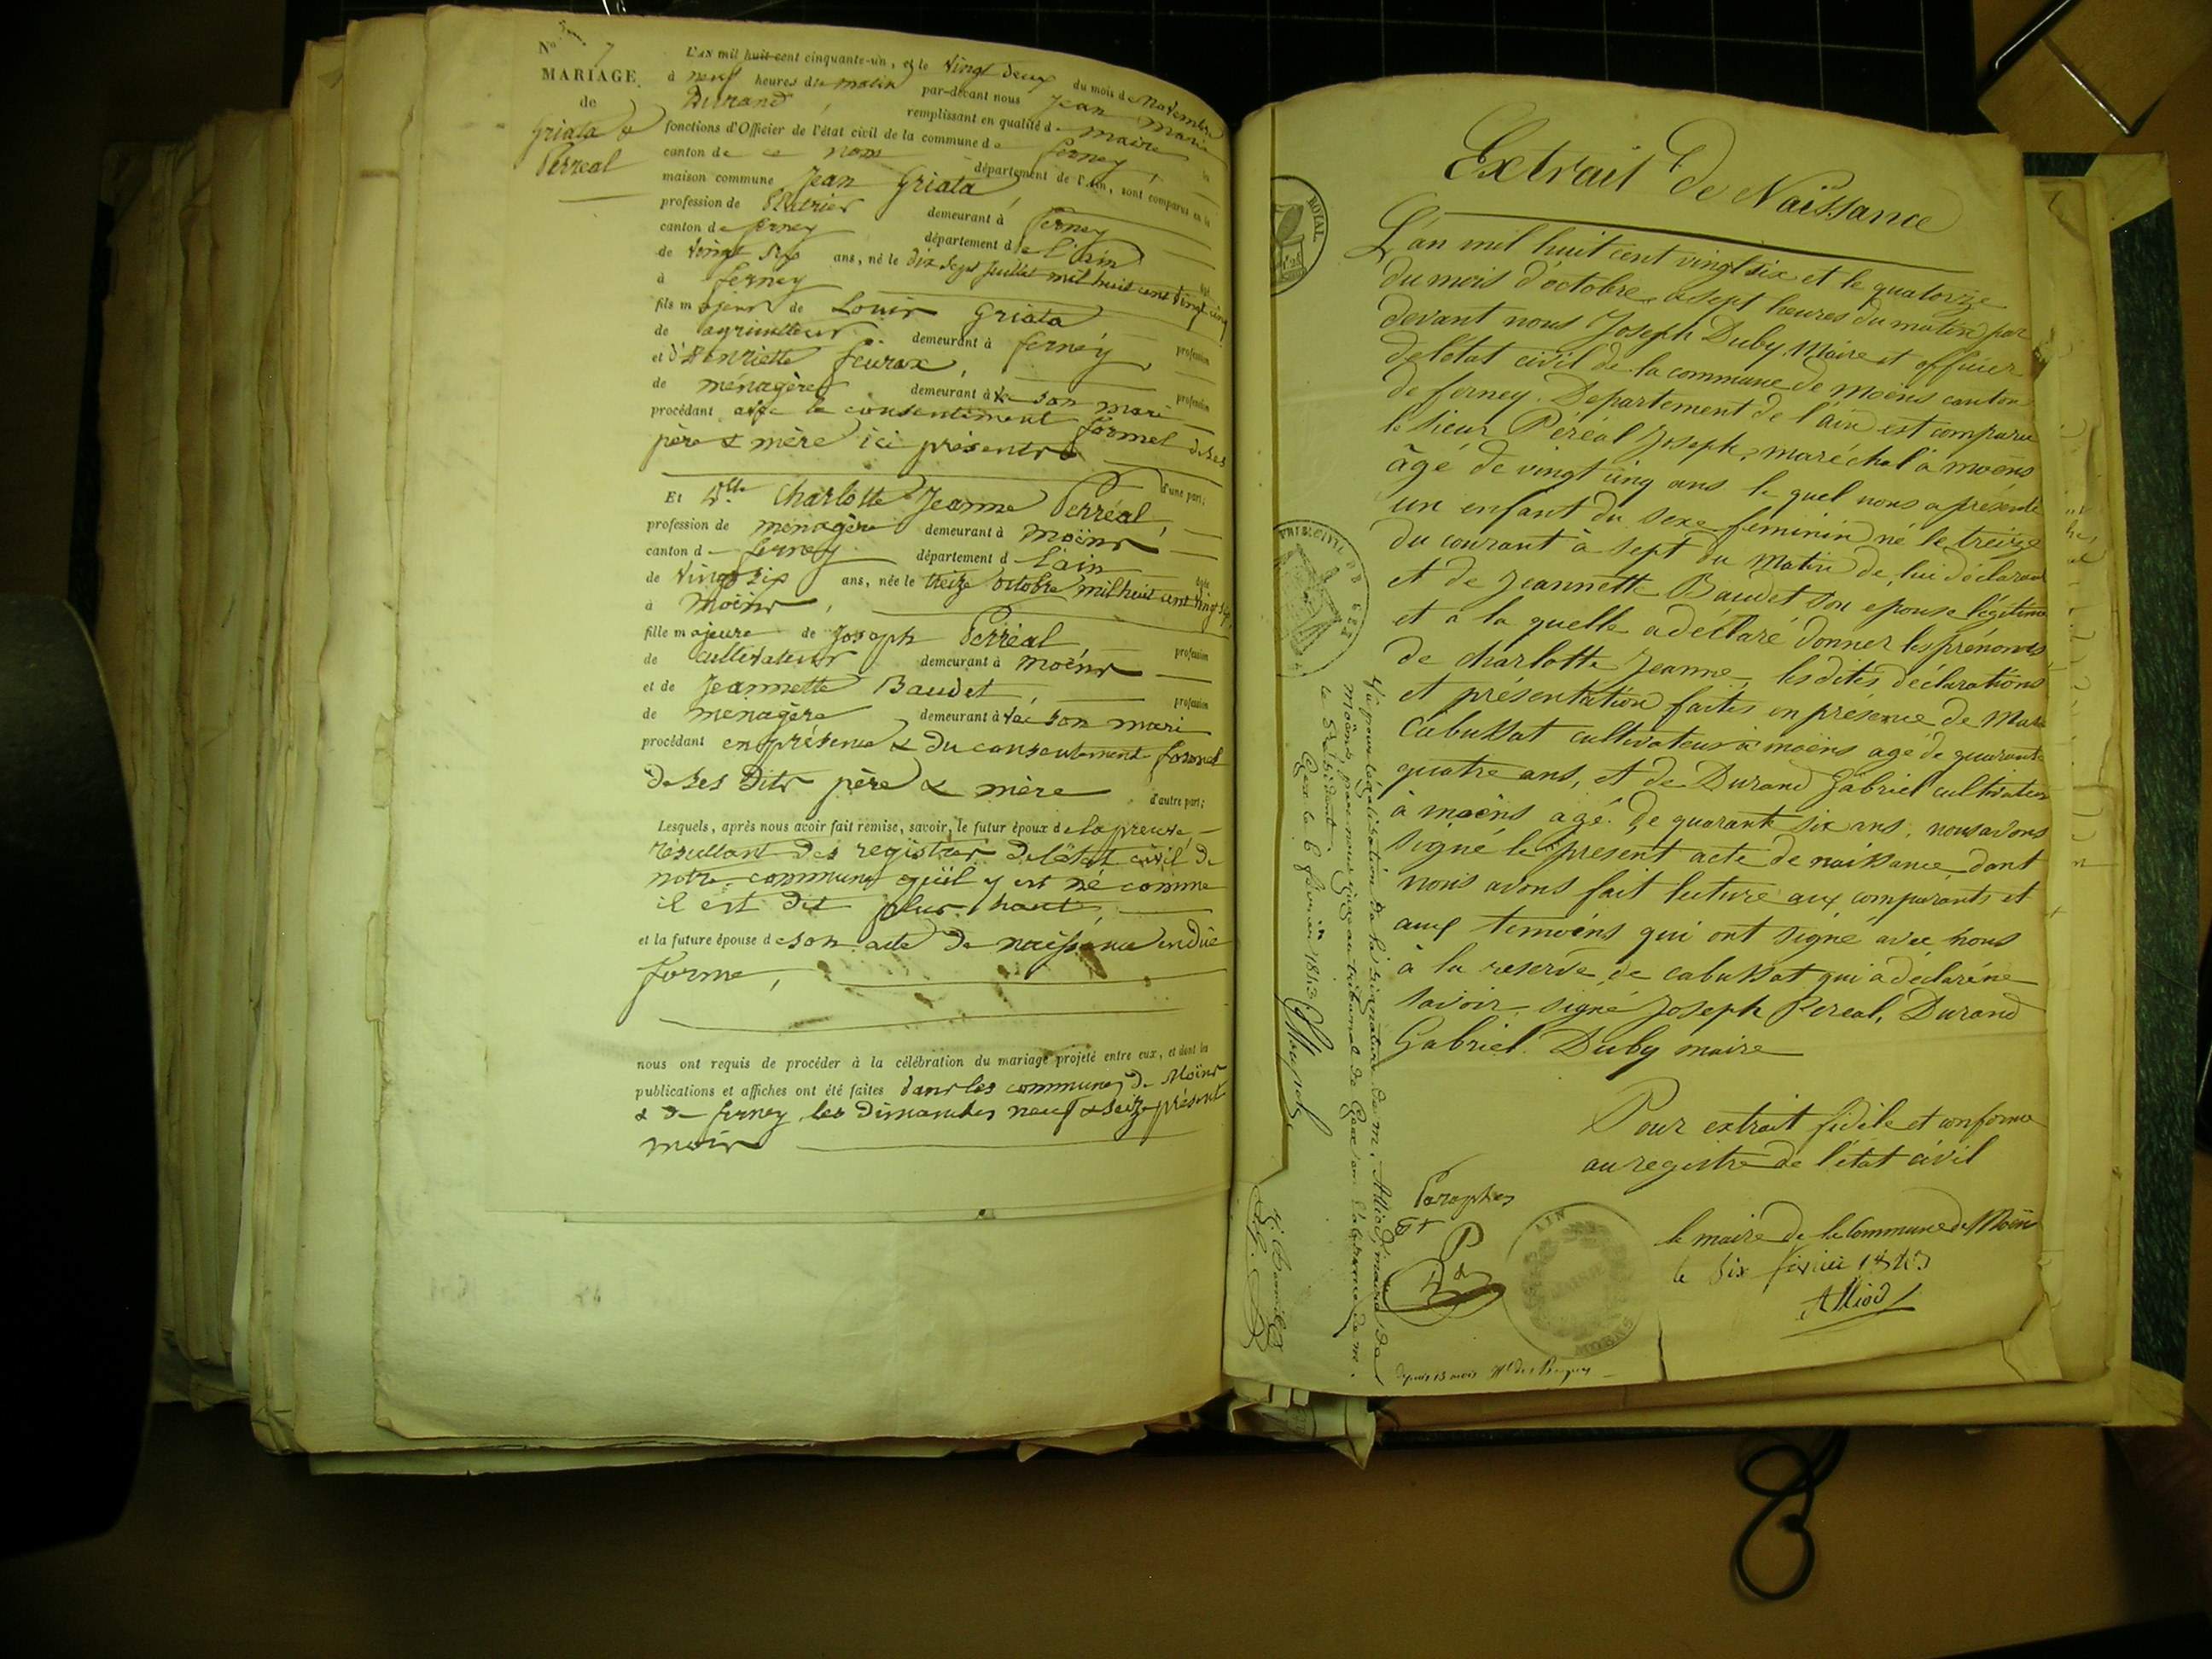 No 7
MARIAGE
de
Griata &
Perréal
L'AN mil huit cent cinquante-un, et le vingt deux du mois de Novembre
à neuf heures du matin par-devant nous Jean Marie
Durand remplissant en qualité de maire
fonctions d'Officier de l'état civil de la commune de ferney,
canton de ce nom département de l'Ain, sont comparus en la
maison commune Jean Griata,
profession de demeurant à ferney
canton de ferney département de l'ain
de vingt six ans, né le dix sept juillet mil huit cent vingt cinq
à ferney
fils majeur de Louis Griata profession
de agriculteur demeurant à ferney,
et d'henriette profession
de ménagère demeurant à son mari
procédant avec le consentement formel de ses
père & mère ici présents
d'une part;
Et Dlle Charlotte Jeanne Perréal,
profession de ménagère demeurant à Moëns
canton de ferney département de l'ain
de vingt six ans, née le treize octobre mil huit cent vingt six
à Moëns,
fille majeure de Joseph Perréal profession
de cultivateur demeurant à Moëns
et de Jeannette Baudet, profession
de ménagère demeurant à son mari
procédant en présence & du consentement formel
de ses dits père & mère d'autre part;
Lesquels, après nous avoir fait remise, savoir, le futur époux de la preuve,
résultant des registres de l'état civil de
notre commune qu'il y est né comme
il est dit plus haut,
et la future épouse de son acte de naissance en due
forme,
nous ont requis de procéder à la célébration du mariage projeté entre eux, et dont les
publications et affiches ont été faites dans les communes de Moëns
& de ferney les dimanches neuf & seize présent
mois
Extrait de Naissance
L'an mil huit cent vingt six et le quatorze
du mois d'octobre, à sept heures du matin par
devant nous Joseph Duby, Maire et officier
de l'état civil de la commune de moëns canton
de ferney. Departement de l'ain est comparu
le sieur Péréal Joseph, maréchal à moëns
âgé de vingt cinq ans le quel nous a présenté
un enfant du sexe feminin né le treize
du courant à sept du matin de lui déclarant
et de Jeannette Baudet son epouse légitime
et a la quelle a déclaré donner les prénoms
de charlotte Jeanne, les dites déclarations
et présentation faites en présence de
Cabussat cultivateur à moëns agé de quarante
quatre ans, et de Durand Gabriel cultivateur
à moëns agé de quarante six ans, nous avons
signé le présent acte de naissance dont
nous avons fait lecture aux comparants et
aux temoins qui ont signé avec nous
à la reserve de cabussat qui a déclaré ne
savoir. signé Joseph Pereal, Durand
Gabriel. Duby maire
Pour extrait fidèle et conforme
au registre de l'état civil
le maire de la Commune de Moëns
le six février 1843
Alliod
Paraphes
Vu pour légalisation de la signature de M. Alliod, maire de
Moëns, par nous juge au tribunal de Gex en l'absence de M.
le Président.
Gex le 6 février 1843
ROYAL
AIN